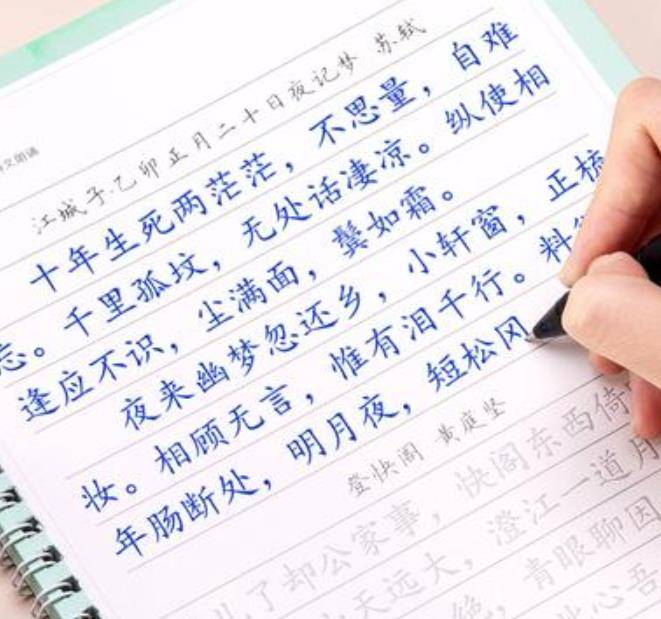 文朗诵
江城子·乙卯正月二十日夜记梦 苏轼
十年生死两茫茫，不思量，自难
忘。千里孤坟，无处话凄凉。纵使相
逢应不识，尘满面，鬓如霜。
夜来幽梦忽还乡，小轩窗，正梳
妆。相顾无言，惟有泪千行。料
年肠断处，明月夜，短松冈
登快阁 黄庭坚
儿了却公家事，快阁东西倚
天远大，澄江一道月
绝，青眼聊因
此心吾